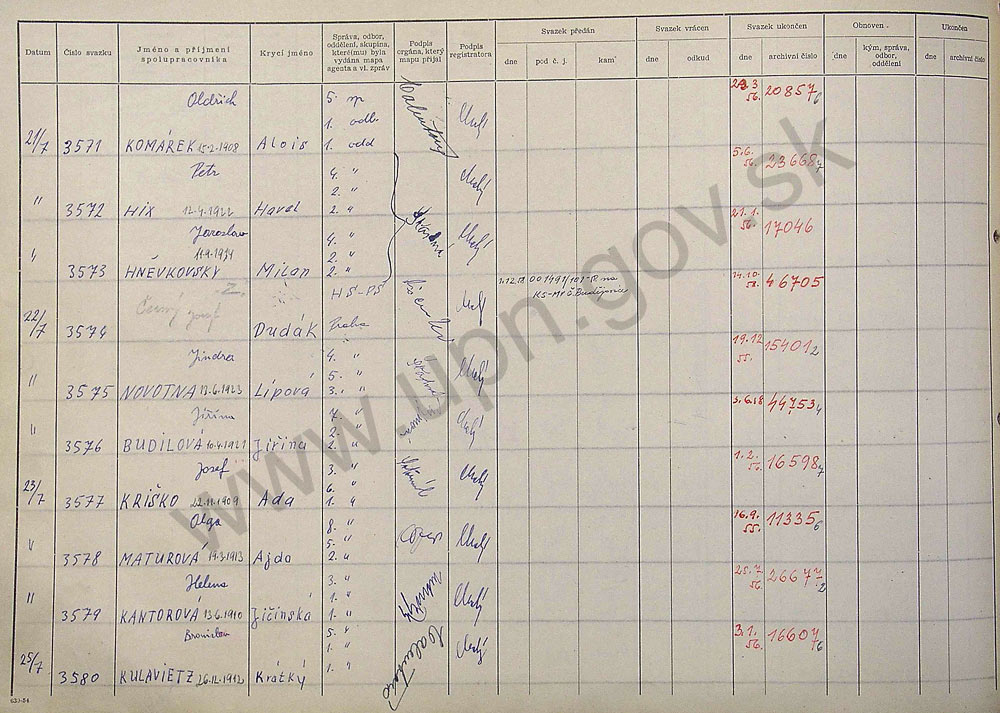 Datum
Číslo svazku
Jméno a příjmení spolupracovníka
Krycí jméno
Správa, odbor, oddělení, skupina, které(mu) byla vydána mapa agenta a vl. zpráv
Podpis orgána, který mapu přijal
Podpis registratora
Svazek předán
dne pod č. j. kam
Svazek vrácen
dne odkud
Svazek ukončen
dne archivní číslo
Obnoven
dne kým, správa, odbor, oddělení
Ukončen
dne archivní číslo
Oldřich 5. sp 20857/6
1. odb 56.
21/7 3571 KOMÁREK 15.2.1908 Alois 1. odd
Petr 4. " 5.6. 56. 23668
2. "
" 3572 HIX 12.4.1922 Havel 2. "
Jaroslav 4. " 21.1. 56. 17046
11.9.1914 2. "
" 3573 HNĚVKOVSKÝ Milan 2. "
HS-PS 1.12. 001491/101 na 14.10. 58. 46705
Černý Josef KS-MV Č. Budějovice
22/7 3574 Dudák Praha
Jindra 4. " 19.12 55. 15401/2
5. "
" 3575 NOVOTNÁ 13.6.1923 Lípová 3. "
Jiřina 7. " 3.6. 44753
2. "
" 3576 BUDILOVÁ 10.4.1921 Jiřina 2. "
Josef 3. " 1.2. 56. 16598
6. "
23/7 3577 KRIŠKO 22.11.1909 Ada 1. "
Olga 8. " 16.9. 55. 11335/6
5. "
" 3578 MATUROVÁ 19.3.1913 Ajda 2. "
Helena 3. " 25.7. 56. 26677/2
1. "
" 3579 KANTOROVÁ 13.6.1910 Jičínská 1. "
Bronislav 5. " 3.1. 56. 16607/6
1. "
25/7 3580 KULAVIETZ 26.12.1912 Krátký 1. "
www.upn.gov.sk